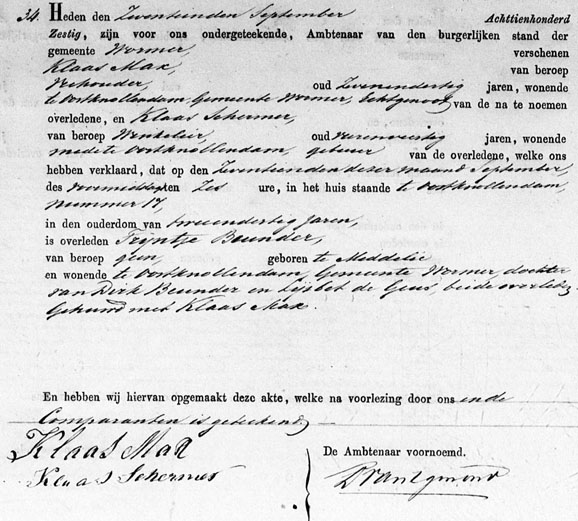 34. Heden den Zeventienden September Achttienhonderd
Zestig, zijn voor ons ondergeteekende, Ambtenaar van den burgerlijken stand der
gemeente Wormer, verschenen
Klaas Max, van beroep
Veehouder, oud Zevenendertig jaren, wonende
te Oostknollendam, Gemeente Wormer, Echtgenoot van de na te noemen
overledene, en Klaas Schermer,
van beroep Winkelier, oud jaren, wonende
mede te Oostknollendam, gebuur van de overledene, welke ons
hebben verklaard, dat op den Zeventienden dezer maand September,
des voormiddags ten Zes ure, in het huis staande te Oostknollendam,
nummer 17,
in den ouderdom van tweeendertig Jaren,
is overleden Trijntje Beunder,
van beroep geen, geboren te Meddelie
en wonende te Oostknollendam, Gemeente Wormer, dochter
van Dirk Beunder en Lijsbet de Geus, beide overleden
Gehuwd met Klaas Max.
En hebben wij hiervan opgemaakt deze akte, welke na voorlezing door ons en de
Comparanten is geteekend,
Klaas Max
Klaas Schermer
De Ambtenaar voornoemd.
D van Egmond